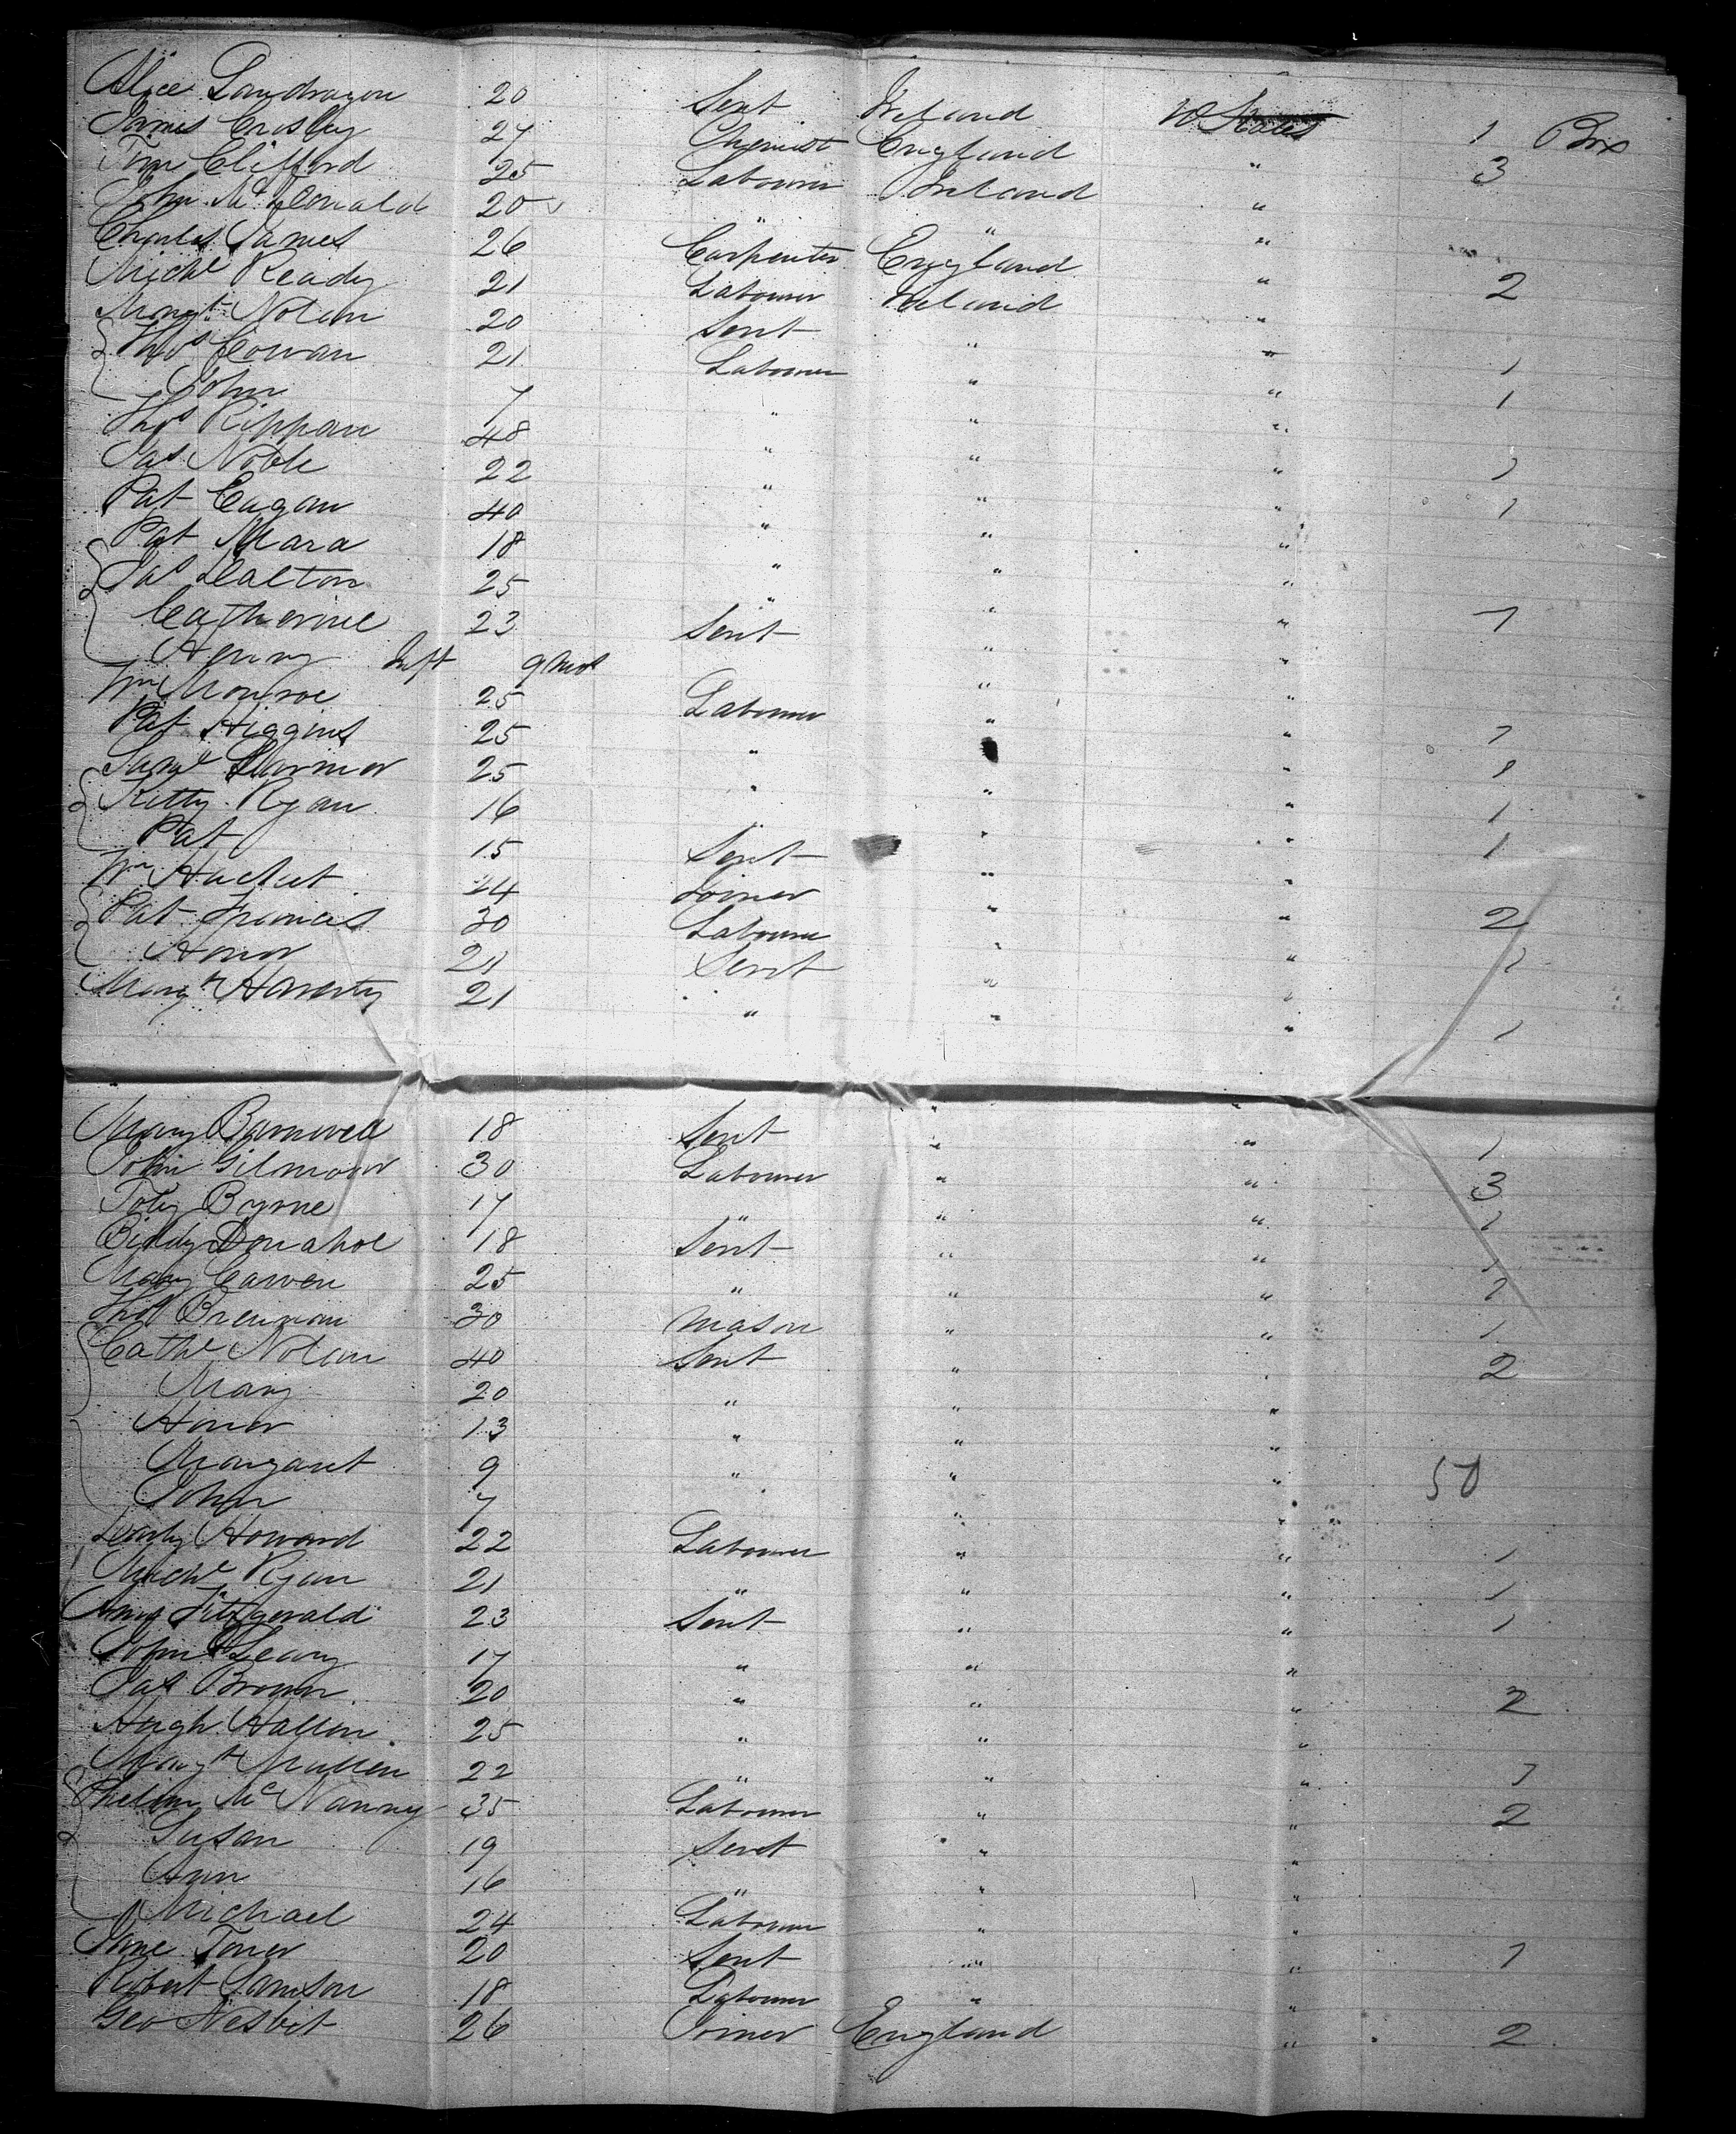 Alice Landragon 20 Servt Ireland U States 1 Box
James Crosley 27 Chemist England " 3
Tim Clifford 25 Labourer Ireland "
John McDonald 20 " " "
Charles James 26 Carpenter England "
Michl Ready 21 Labourer Ireland " 2
Margt Nolan 20 Servt " "
Thos Cowan 21 Labourer " " 1
John 7 " " " 1
Thos Kippan 48 " " "
Jas Noble 22 " " " 1
Pat Eagan 40 " " " 1
Pat Mara 18 " " "
Jas Dalton 25 " " "
Catherine 23 Servt " " 1
Henry Inft 9 mos " "
Wm Monroe 25 Labourer " "
Pat Higgins 25 " " " 1
Saml 25 " " " 1
Kitty Ryan 16 " " " 1
Pat 15 Servt " " 1
Wm Hacket 24 Joiner " "
Pat Francis 30 Labourer " " 2
Honor 21 Servt " " 1
Margt Haverty 21 " " " 1
Mary Barnwell 18 Servt " " 1
John Gilmour 30 Labourer " " 3
Toby Byrne 17 " " " 1
Biddy Donahoe 18 Servt " " 1
Mary Carven 25 " " " 1
Thos Brennan 30 Mason " " 1
Cathe Nolan 40 Servt " " 2
Mary 20 " " "
Honor 13 " " "
Margaret 9 " " " 50
John 7 " "
Howard 22 Labourer " " 1
Michl Ryan 21 " " " 1
Fitzgerald 23 Servt " " 1
John O'Leary 17 " " "
Jas Brown 20 " " " 2
Hugh Hallon 25 " " "
Margt Mullen 22 " " " 1
Phelim McNanny 35 Labourer " " 2
Susan 19 Servt " "
Ann 16 " " "
Michael 24 Labourer " "
Jane Toner 20 Servt " " 1
Robert Samson 18 Labourer " "
Geo Nesbit 26 Joiner England " 2